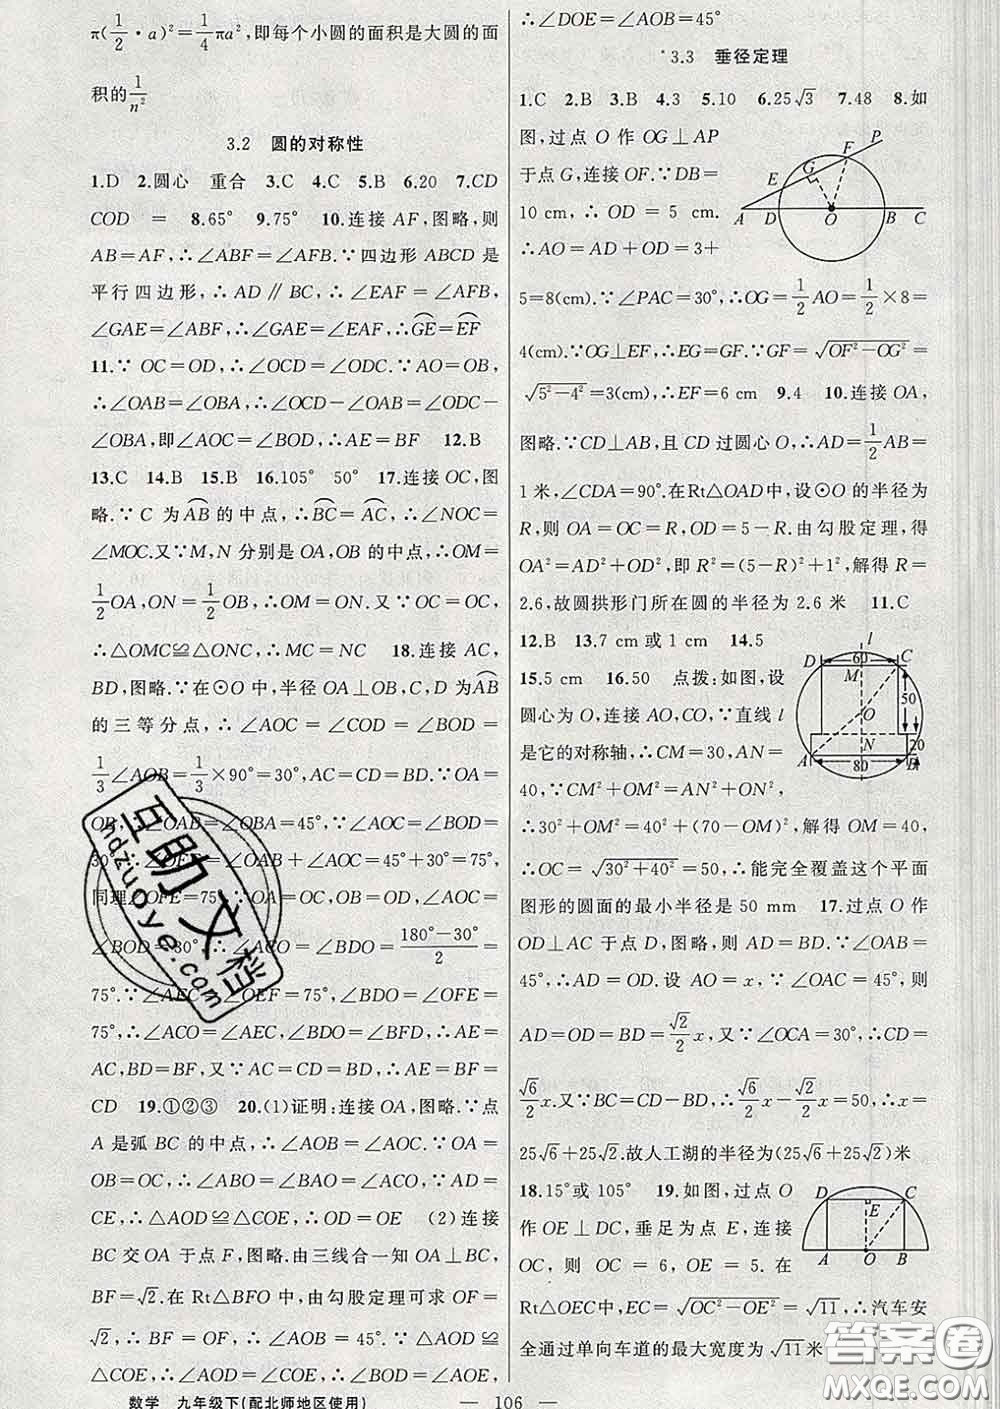 π(1/2·a)²=1/4πa²,即每个小圆的面积是大圆的面
积的1/n²
3.2 圆的对称性
1.D 2.圆心 重合 3.C 4.C 5.B 6.20 7.CD
COD = 8.65° 9.75° 10.连接 AF,图略,则
AB=AF,∴∠ABF=∠AFB.∵四边形 ABCD 是
平行四边形,∴AD∥BC,∴∠EAF=∠AFB,
∠GAE=∠ABF,∴∠GAE=∠EAF,∴G͡E=E͡F
11.∵OC=OD,∴∠OCD=∠ODC.∵AO=OB,
∴∠OAB=∠OBA,∴∠OCD-∠OAB=∠ODC-
∠OBA,即∠AOC=∠BOD,∴AE=BF 12.B
13.C 14.B 15.B 16.105° 50° 17.连接 OC,图
略.∵C 为A͡B的中点,∴B͡C=A͡C,∴∠NOC=
∠MOC.又∵M,N 分别是 OA,OB 的中点,∴OM=
1/2OA,ON=1/2OB,∴OM=ON.又∵OC=OC,
∴△OMC≌△ONC,∴MC=NC 18.连接 AC,
BD,图略.∵在⊙O 中,半径 OA⊥OB,C,D 为A͡B
的三等分点,∴∠AOC=∠COD=∠BOD=
1/3∠AOB=1/3×90°=30°,AC=CD=BD.∵OA=
OB,∴∠OAB=∠OBA=45°,∵∠AOC=∠BOD=
30°,∴∠OEF=∠OAB+∠AOC=45°+30°=75°,
同理∠OFE=75°.∵OA=OC,OB=OD,∠AOC=
∠BOD=30°,∴∠ACO=∠BDO=(180°-30°)/2=
75°.∵∠AEC=∠OEF=75°,∠BDO=∠OFE=
75°,∴∠ACO=∠AEC,∠BDO=∠BFD,∴AE=
AC,BD=BF,又∵AC=CD=BD,∴AE=BF=
CD 19.①②③ 20.(1)证明:连接OA,图略.∵点
A 是弧 BC 的中点,∴∠AOB=∠AOC.∵OA=
OB=OC,∴∠ABO=∠ACO.又∵AD=
CE,∴△AOD≌△COE,∴OD=OE (2)连接
BC 交 OA 于点 F,图略.由三线合一知 OA⊥BC,
BF=√2.在 Rt△BFO 中,由勾股定理可求 OF=
√2,∴BF=OF,∴∠AOB=45°.∵△AOD≌
△COE,∴∠AOD=∠COE,∴∠AOD=∠COE,
数学 九年级下(配北师地区使用)
— 106 —
∴∠DOE=∠AOB=45°
3.3 垂径定理
1.C 2.B 3.B 4.3 5.10 6.25√3 7.48 8.如
图,过点 O 作 OG⊥AP
于点 G,连接 OF.∵DB=
10 cm,∴OD=5 cm.
∴AO=AD+OD=3+
A D O B C E G F P
5=8(cm).∵∠PAC=30°,∴OG=1/2AO=1/2×8=
4(cm).∵OG⊥EF,∴EG=GF.∵GF=√(OF²-OG²)=
√(5²-4²)=3(cm),∴EF=6 cm 9.4 10.连接 OA,
图略.∵CD⊥AB,且 CD 过圆心 O,∴AD=1/2AB=
1米,∠CDA=90°.在Rt△OAD中,设⊙O 的半径为
R,则 OA=OC=R,OD=5-R.由勾股定理,得
OA²=AD²+OD²,即 R²=(5-R)²+1²,解得 R=
2.6,故圆拱形门所在圆的半径为 2.6 米 11.C
12.B 13.7 cm 或 1 cm 14.5
15.5 cm 16.50 点拨:如图,设
圆心为 O,连接 AO,CO,∵直线 l
是它的对称轴,∴CM=30,AN=
l D 60 C M 50 O N 20 A 80 B
40,∵CM²+OM²=AN²+ON²,
∴30²+OM²=40²+(70-OM)²,解得 OM=40,
∴OC=√(30²+40²)=50,∴能完全覆盖这个平面
图形的圆面的最小半径是 50 mm 17.过点 O 作
OD⊥AC 于点 D,图略,则 AD=BD.∵∠OAC=
45°,∴AD=OD.设 AO=x,∵∠OAC=45°,则
AD=OD=BD=√2/2x,又∵∠OCA=30°,∴CD=
√6/2x.又∵BC=CD-BD,∴√6/2x-√2/2x=50,∴x=
25√6+25√2.故人工湖的半径为(25√6+25√2)米
18.15°或 105° 19.如图,过点 O
作 OE⊥DC,垂足为点 E,连接
OC,则 OC=6,OE=5.在
D C E A O B
Rt△OEC中,EC=√(OC²-OE²)=√11,∴汽车安
全通过单向车道的最大宽度为√11米
互助文档
hdzuoye.com
答案圈
MXQE.COM